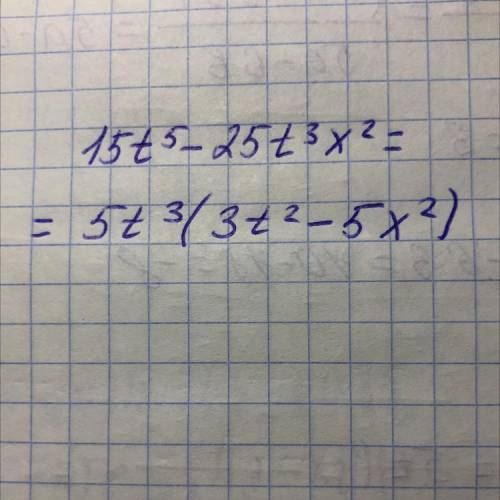 15t⁵ - 25t³x² =
= 5t³(3t² - 5x²)